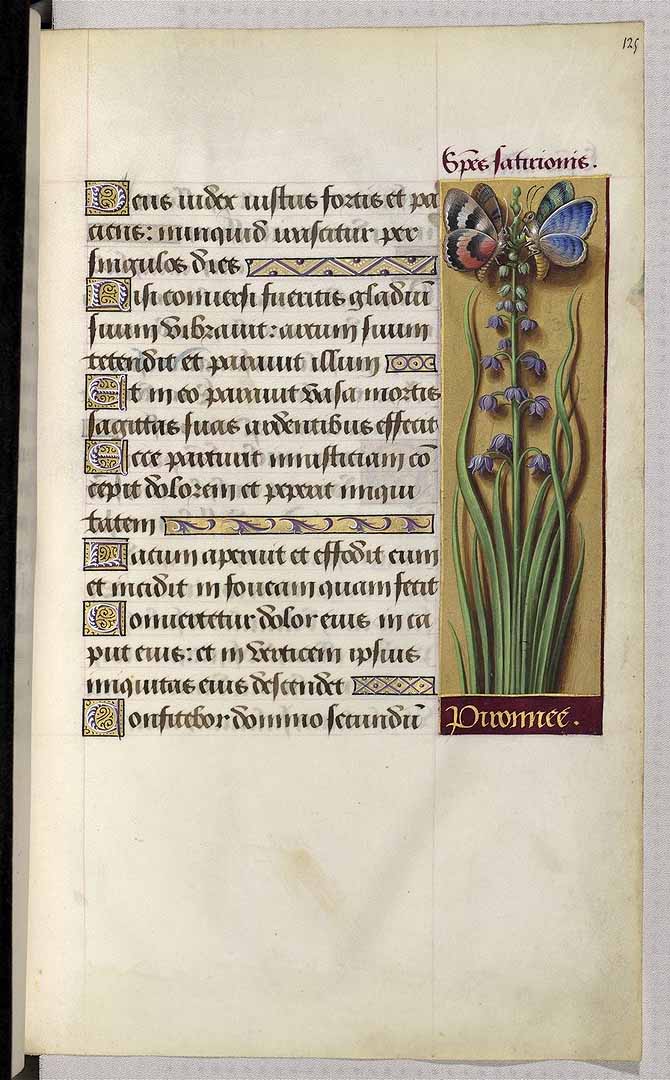 125
Sp̃es satirionis.
Deus iudex iustus fortis et pa
ciens: nunquid irascitur per
singulos dies
Nisi conuersi fueritis gladiũ
suum vibrauit: arcum suum
tetendit et parauit illum
Et in eo parauit vasa mortis
sagittas suas ardentibus effecit
Ecce parturit iniusticiam cõ
cepit dolorem et peperit iniqui
tatem
Lacum aperuit et effodit eum
et incidit in foueam quam fecit
Conuertetur dolor eius in ca
put eius: et in verticem ipsius
iniquitas eius descendet
Confitebor domino secundũ
Pironneé.